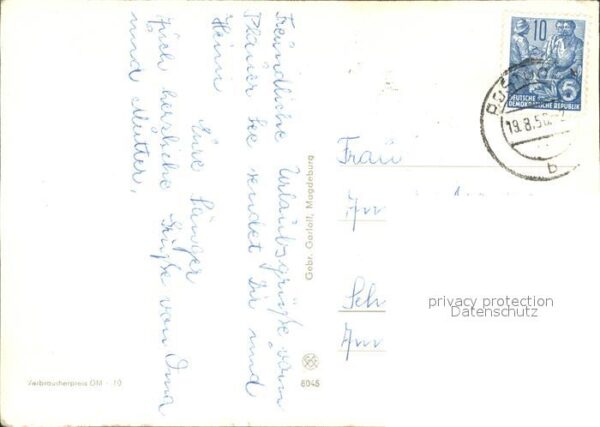 Freundliche Urlaubsgrüße vom
Plauer See sendet Dir und
Heini
Eure Sänger
Auch herzliche Grüße von Oma
und Mutter.
Gebr. Garloff, Magdeburg
6045
Verbraucherpreis DM -.10
10
DEUTSCHE
DEMOKRATISCHE REPUBLIK
19.8.56
b
Frau
An
Sch
Am
privacy protection
Datenschutz